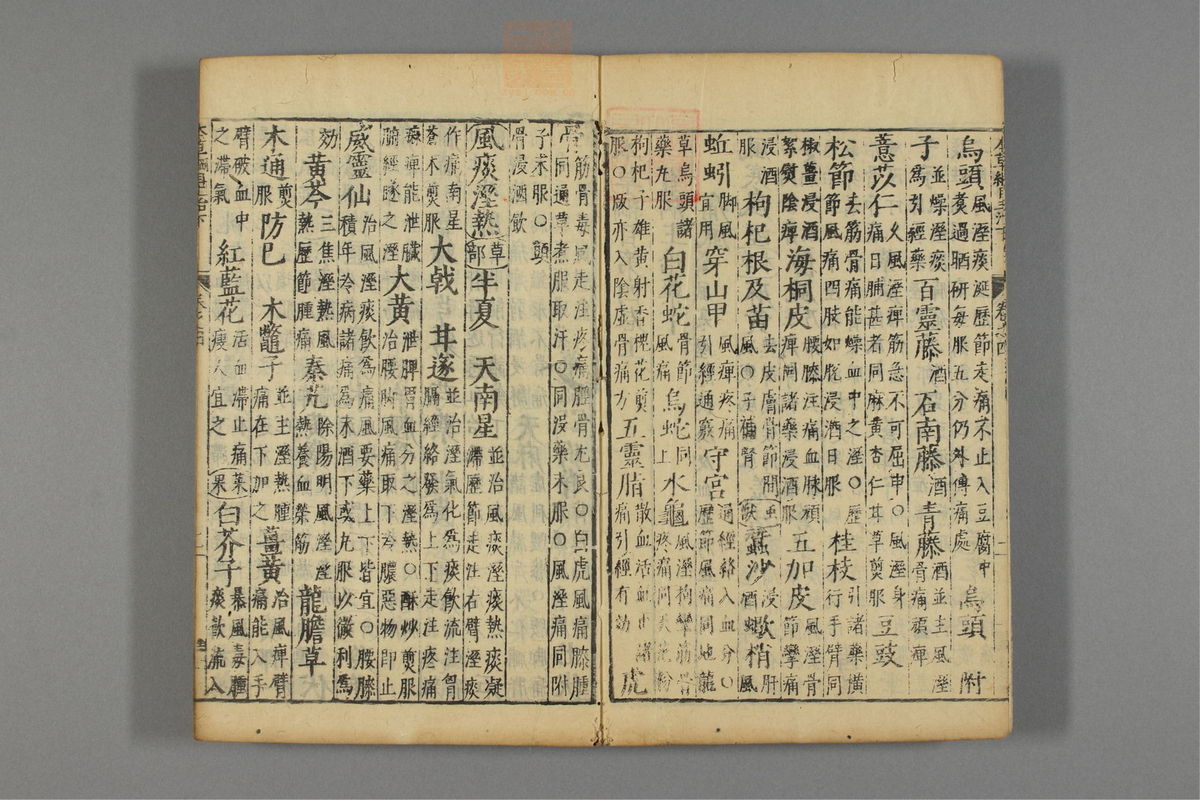 烏頭風溼痰涎歷節走痛不止入豆腐中煑過晒研每服五分仍外傅痛處 烏頭 附
子並燥溼痰為引經藥 百靈藤酒 石南藤酒 青藤酒並主風溼骨痛頑痺
薏苡仁久風溼痺筋急不可屈申○風溼身痛日晡甚者同麻黃杏仁甘草煎服 豆豉
松節去筋骨痛能燥血中之溼○歷節風痛四肢如脫浸酒日服 桂枝引諸藥橫行手臂同
椒薑浸酒絮熨陰痺 海桐皮腰膝注痛血脉頑痺同諸藥浸酒服 五加皮風溼骨節攣痛
浸酒服 枸杞根及苗去皮膚骨節間風○子補腎 蟲獸 蠶沙浸酒 蠍梢肝風
蚯蚓脚風宜用 穿山甲風痺疼痛引經通竅 守宮通經絡入血分○歷節風痛同地龍
草烏頭諸藥丸服 白花蛇骨節風痛 烏蛇同上 水龜風溼拘攣筋骨疼痛同天花粉
枸杞子雄黃射香槐花煎服○版亦入陰虛骨痛方 五靈脂散血活血止諸痛引經有効 虎
骨筋骨毒風走注疼痛脛骨尤良○白虎風痛膝腫同通草煑服取汗○同沒藥末服○風溼痛同附
子末服○頭骨浸酒飲
風痰溼熱 草部 半夏 天南星並治風痰溼痰熱痰凝滯歷節走注右臂溼痰
作痛南星蒼朮煎服 大戟 甘遂並治溼氣化為痰飲流注胷膈經絡發為上下走注疼痛
痲痺能泄臟腑經隧之溼 大黃泄脾胃血分之溼熱○酥炒煎服治腰脚風痛取下冷膿惡物即止
威靈仙治風溼痰飲為痛風要藥上下皆宜○腰膝積年冷病諸痛為末酒下或丸服以微利為
効 黃芩三焦溼熱風熱歷節腫痛 秦艽除陽明風溼溼熱養血榮筋 龍膽草
木通煎服 防己 木鱉子並主溼熱腫痛在下加之 薑黃治風痺臂痛能入手
臂破血中之滯氣 紅藍花活血滯止痛瘦人宜之 菜果 白芥子暴風毒腫痰飲流入